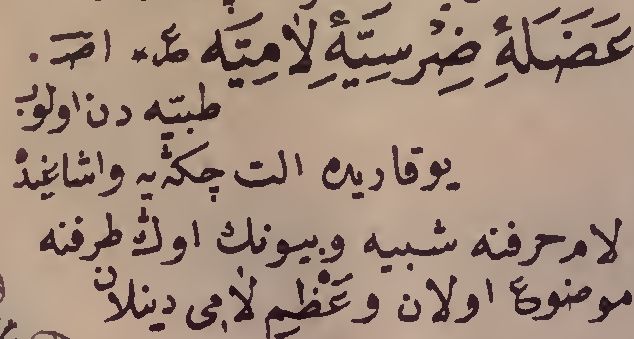 عَضَلَۀِ ضِرْسِيَّۀِ لَامِيَّه ع٭ اصـ .
طبيّه دن اولوب
يوقاريده الت چكه‌يه واشاغيده
لام حرفنه شبيه وبيونك اوڭ طرفنه
موضوع اولان وعَظْمِ لَامِى دينلان